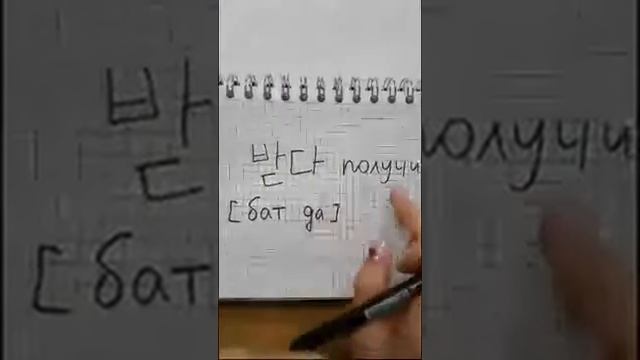 받다 получи
[бат да]